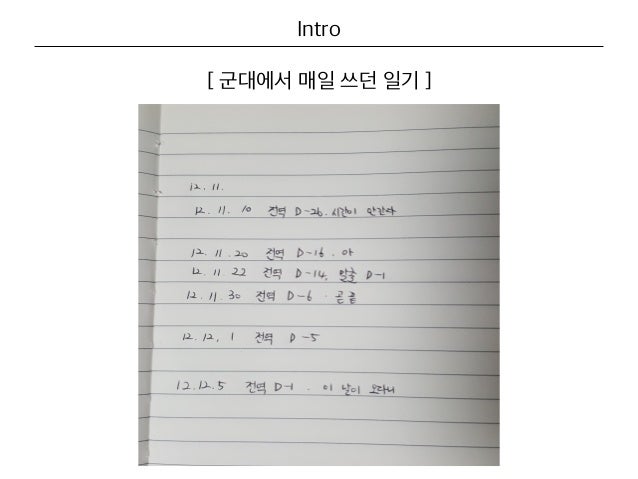 Intro
[ 군대에서 매일 쓰던 일기 ]
12. 11.
12. 11. 10 전역 D-26. 시간이 안간다
12. 11. 20 전역 D-16. 아
12. 11. 22 전역 D-14, 말출 D-1
12. 11. 30 전역 D-6. 곧끝
12. 12. 1 전역 D-5
12.12.5 전역 D-1. 이 날이 오다니